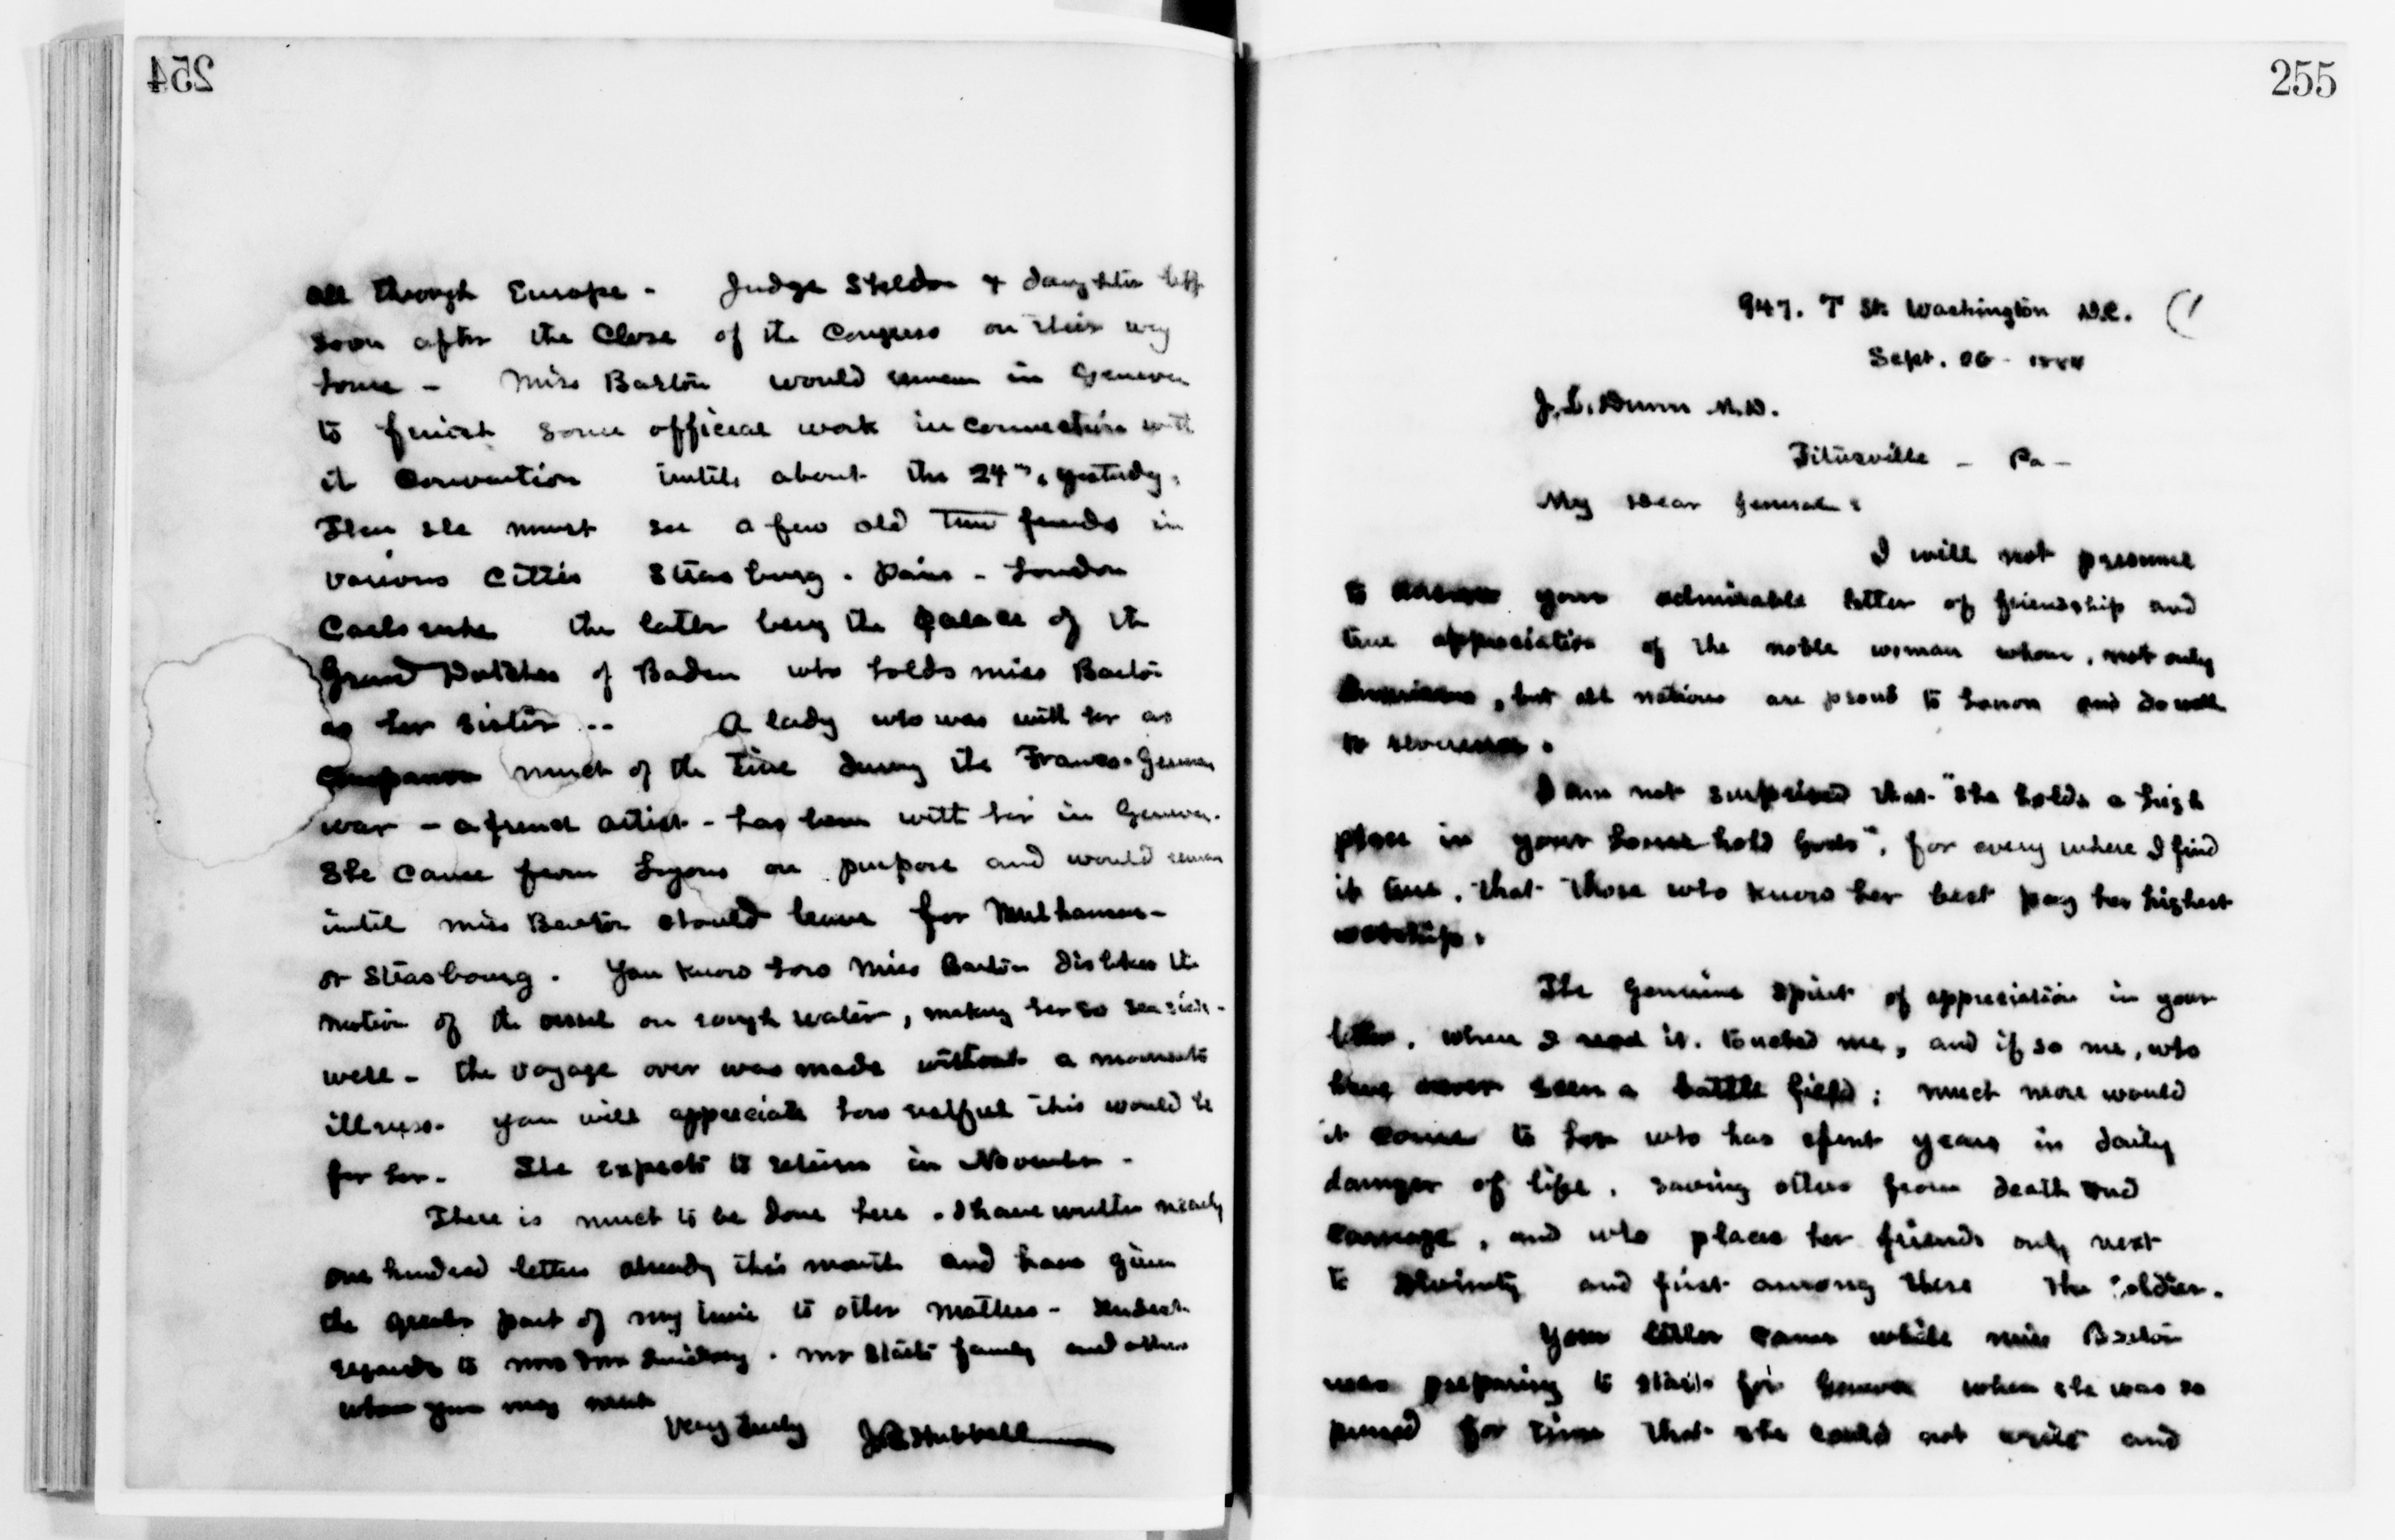 254
all through Europe - Judge Sheldon & daughter left
soon after the Close of the Congress on their way
home - Miss Barton would remain in Geneva
to finish some official work in connection with
it Convention until about the 24th, yesterday,
Then she must see a few old time friends in
various Citties Strasburg. Paris - London
Carlsruhe the latter being the Palace of the
Grand Dutches of Baden who holds Miss Barton
as her sister -- A lady who was with her as
Companion much of the time during the Franco-German
war - a french artist - has been with her in Geneva.
She came from Lyons on purpose and would remain
until Miss Barton should leave for Mulhausen -
or Strasbourg. You know how Miss Barton dislikes the
motion of the vessel on rough water, making her so sea sick -
well - the voyage over was made without a moments
illness. you will appreciate how restful this would be
for her. She expects to return in November -
There is much to be done here. I have written nearly
one hundred letters already this month and have given
the greater part of my time to other matters - Kindest
regards to family and others
whom you may meet
Very truly J.B. Hubbell
255
947. T St. Washington D.C. (1
Sept. 26 - 1884
J. L. Dunn M.D.
Titusville - Pa -
My Dear General:
I will not presume
to answer your admirable letter of friendship and
true appreciation of the noble woman whom, not only
Americans, but all nations are proud to honor and do well
to reverence.
I am not surprised that "she holds a high
place in your house-hold Gods", for every where I find
it true, that those who know her best pay her highest
worship.
The genuine spirit of appreciation in your
letter, when I read it, touched me, and if so me, who
have never seen a battle field; much more would
it come to her who has spent years in daily
danger of life, saving others from death and
carnage, and who places her friends only next
to Divinity and first among these the soldier.
Your letter came while Miss Barton
was preparing to start for Geneva when she was so
pressed for time that she could not write and